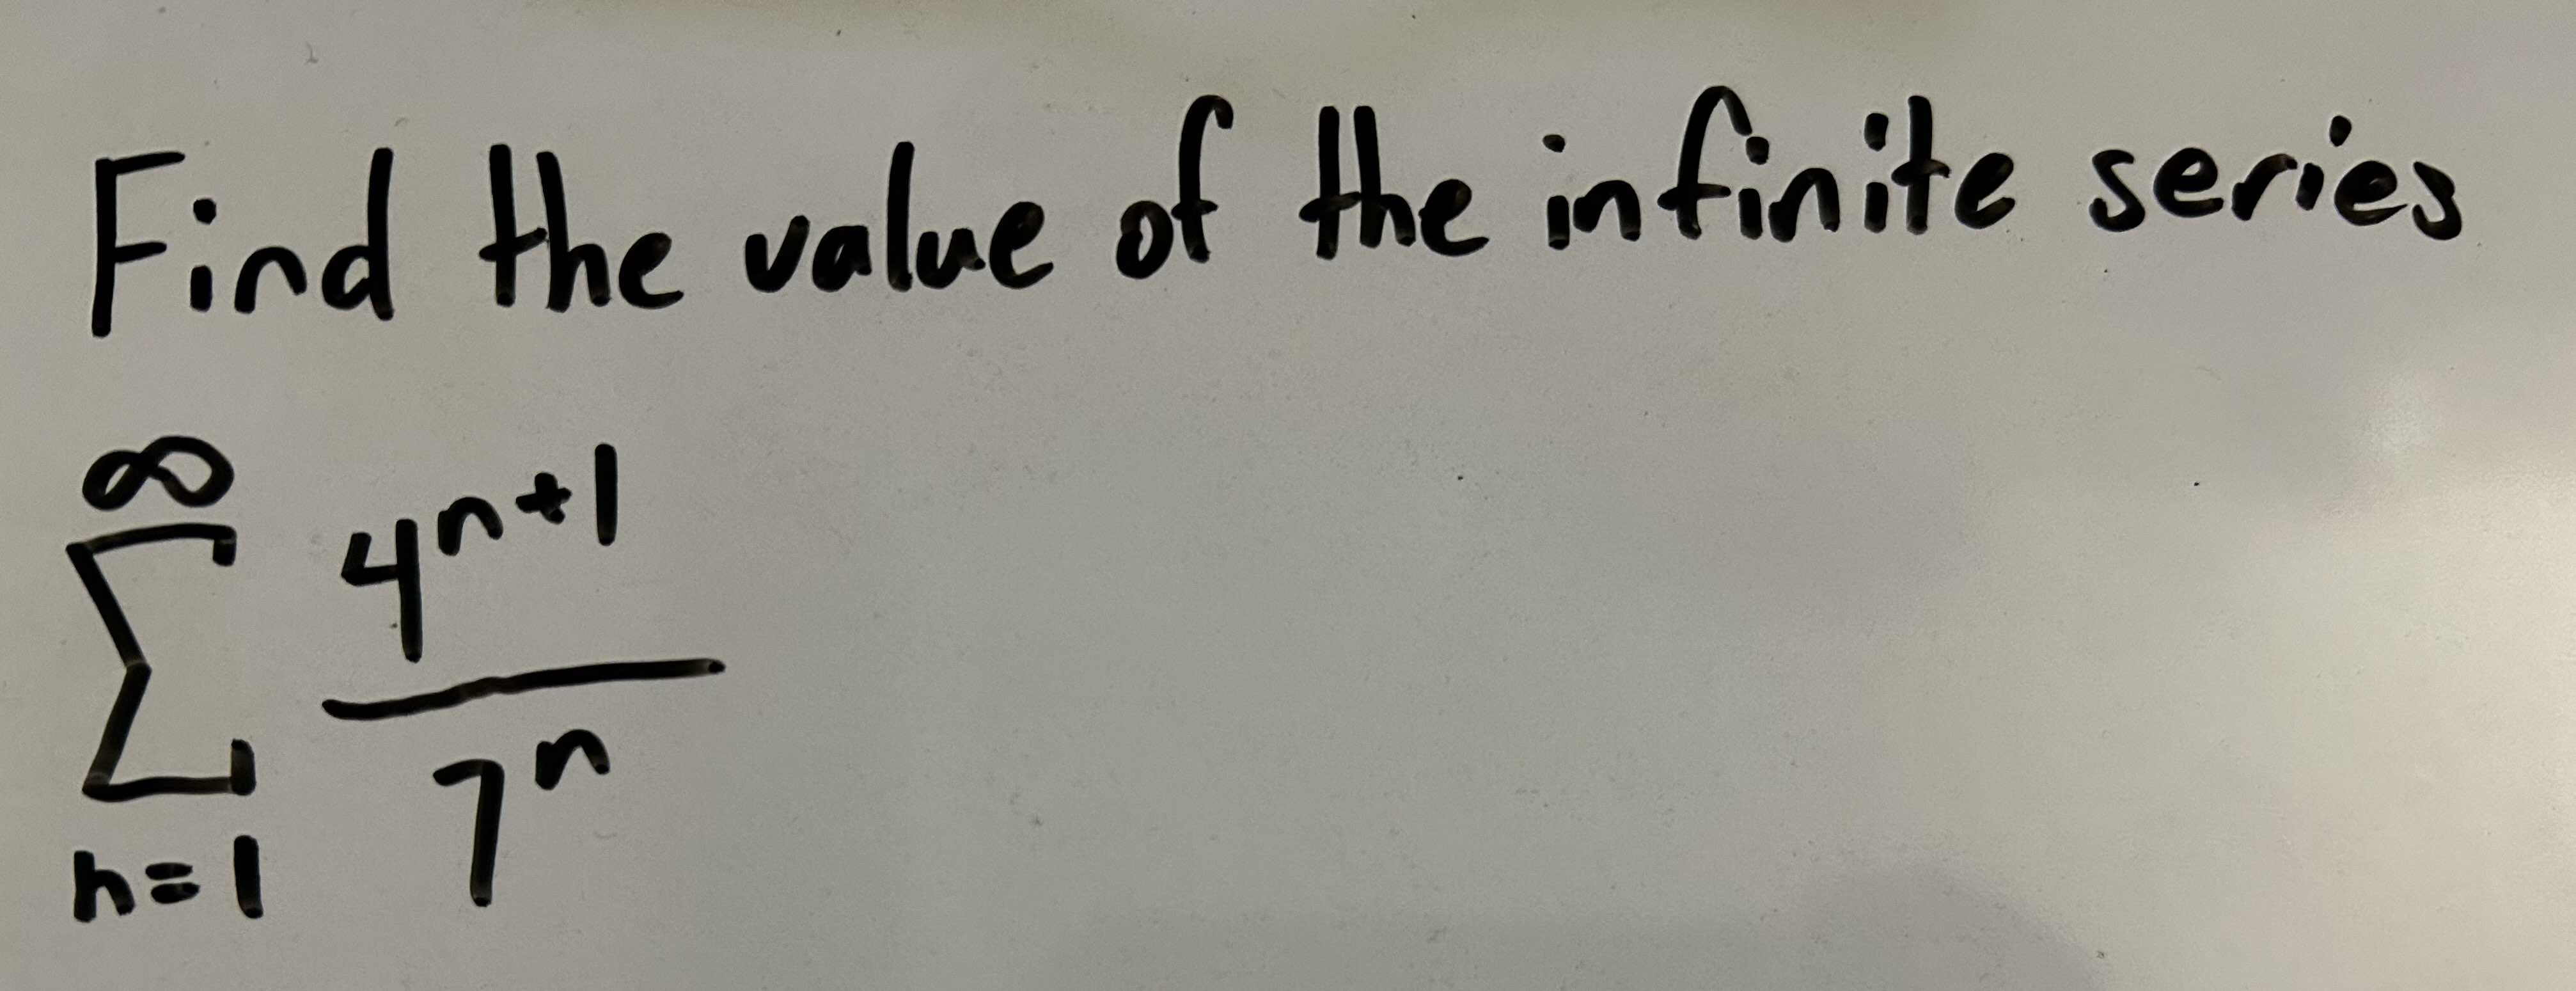 Find the value of the infinite series
∞
∑ 4^{n+1} / 7^n
n=1